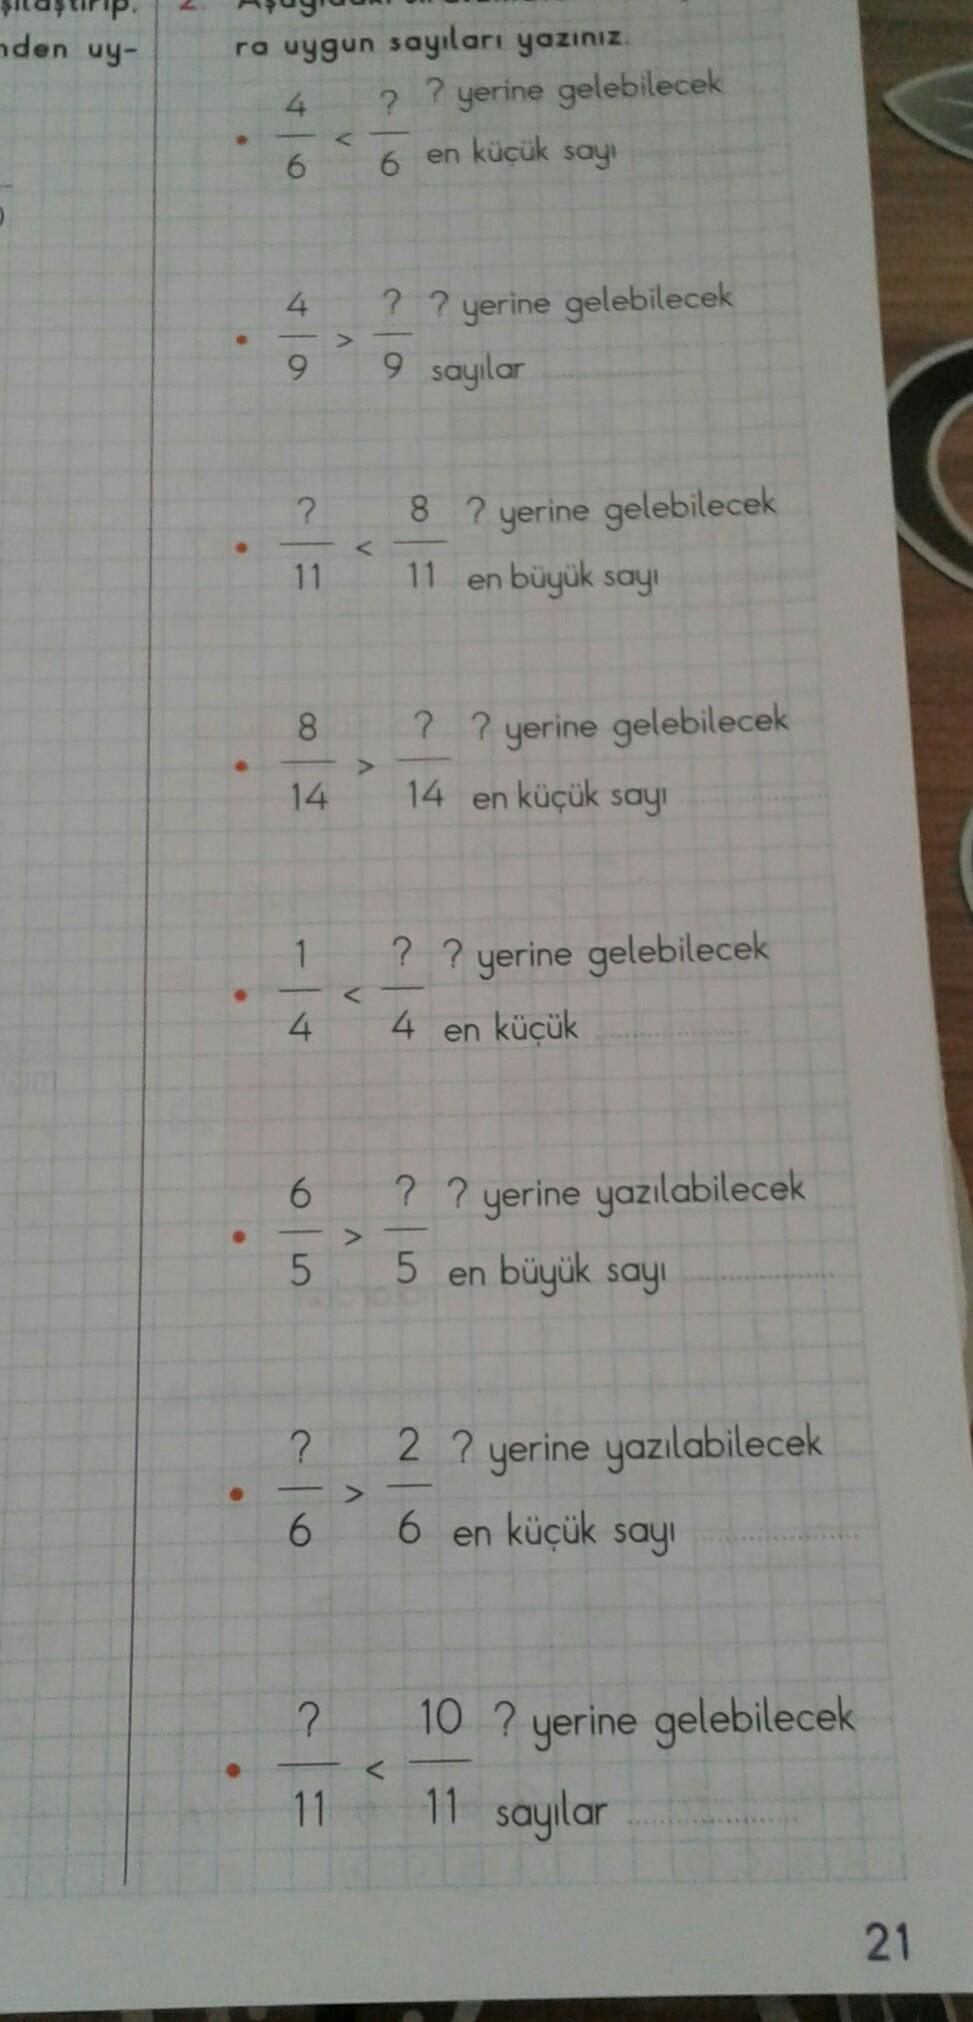 uy-
2.
ra uygun sayıları yazınız.
• 4/6 < ?/6 ? yerine gelebilecek
en küçük sayı
• 4/9 > ?/9 ? yerine gelebilecek
sayılar ....................
• ?/11 < 8/11 ? yerine gelebilecek
en büyük sayı
• 8/14 > ?/14 ? yerine gelebilecek
en küçük sayı ....................
• 1/4 < ?/4 ? yerine gelebilecek
en küçük ....................
• 6/5 > ?/5 ? yerine yazılabilecek
en büyük sayı ....................
• ?/6 > 2/6 ? yerine yazılabilecek
en küçük sayı ....................
• ?/11 < 10/11 ? yerine gelebilecek
sayılar ....................
21